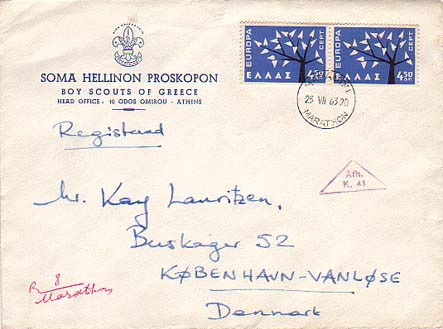 SOMA HELLINON PROSKOPON
BOY SCOUTS OF GREECE
HEAD OFFICE - 10 ODOS OMIROU - ATHENS
EUROPA CEPT
ΕΛΛΑΣ 4.50
EUROPA CEPT
ΕΛΛΑΣ 4.50
25 VII 63.20
MARATHON
Registered
Ath.
K. 41
Mr. Kay Lauritzen,
Buskager 52
KØBENHAVN-VANLØSE
Denmark
R 8
Marathon